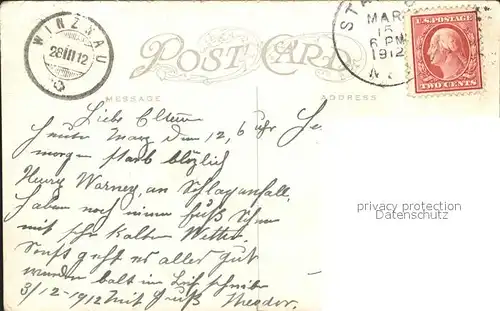 WINZNAU
28 III 12
POST CARD
MESSAGE
ADDRESS
STA
MAR
15
6 PM
1912
N
U.S. POSTAGE
TWO CENTS
Liebe Eltern
heute den 12, 6 uhr
morgen starb
Henry Warney an Schlaganfall.
haben noch immer fuß Schnee
mit sehr kalten Wetter.
Sonst geht es aller gut
werden balt im schreiben
3/12-1912 Mit Gruß Theodor.
privacy protection
Datenschutz